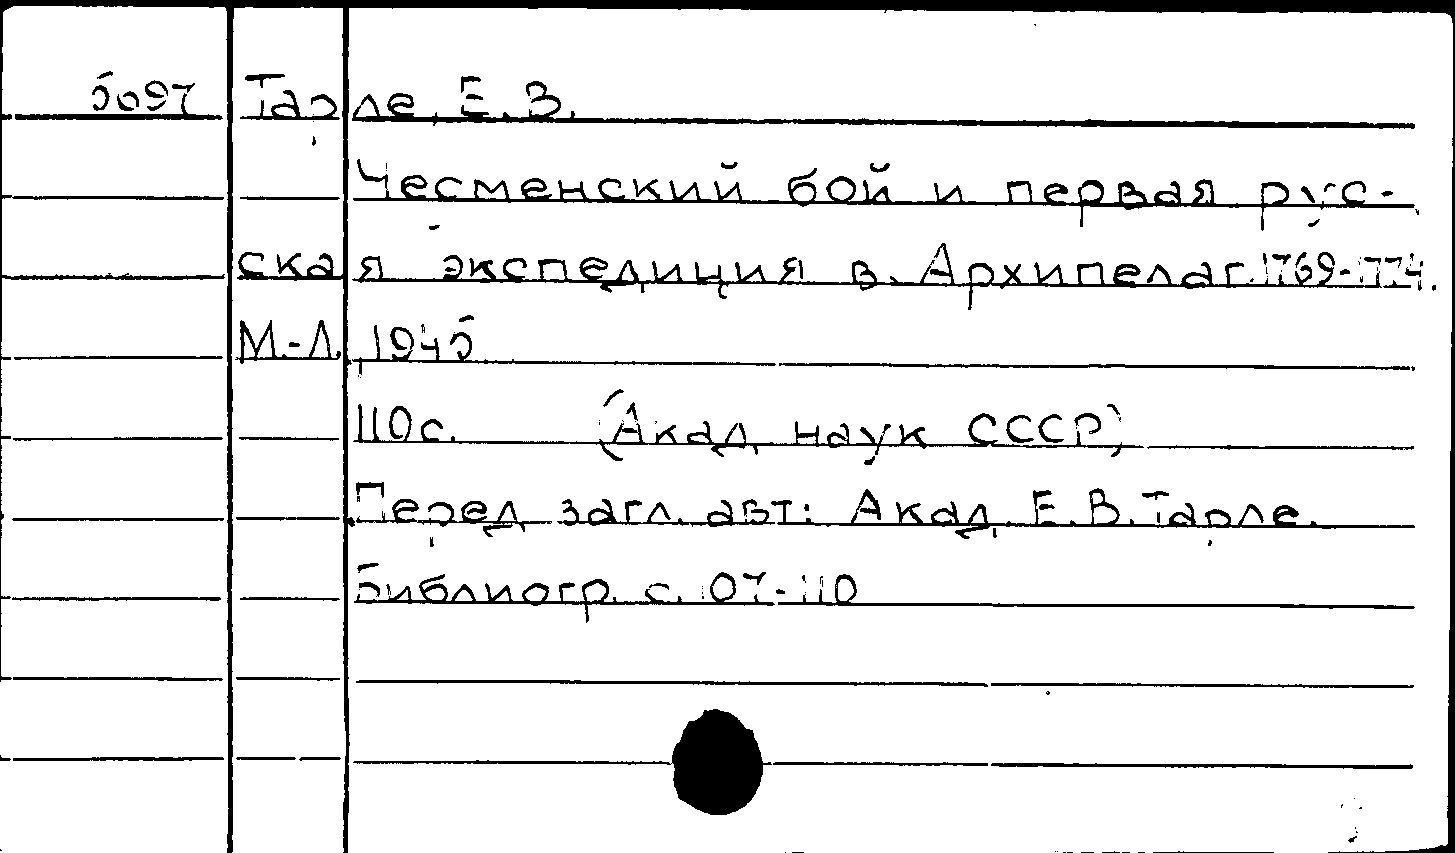 5097 Тарле, Е. В.
Чесменский бой и первая рус-
ская экспедиция в Архипелаг. 1769-1774.
М.-Л. 1945
110 с. (Акад. наук СССР)
Перед загл. авт: Акад. Е. В. Тарле.
Библиогр. с. 107-110